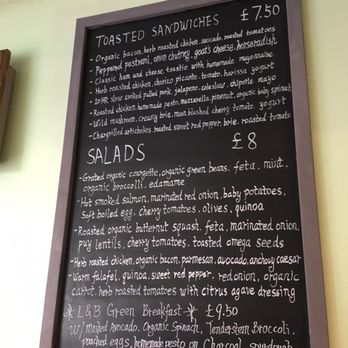 TOASTED SANDWICHES £7.50
- Organic bacon, herb roasted chicken, avocado, roasted tomatoes
- Peppered pastrami, onion chutney, goat's cheese, horseradish
- Classic ham and cheese toastie with homemade mayonnaise
- Herb roasted chicken, chorizo picante, tomato, harissa yogurt
- 10HR slow cooked pulled pork, jalapeno, coleslaw, chipotle mayo
- Roasted chicken, homemade pesto, mozzarella, pimientot, organic baby spinach
- Wild mushroom, creamy brie, mon blushed cherry tomato, yogurt
- Chargrilled artichokes, roasted sweet red pepper, brie, tomato
SALADS £8
- Grated organic courgette, organic green beans, feta, mint,
organic broccolli, edamame
- Hot smoked salmon, marinated red onion, baby potatoes,
Soft boiled egg, cherry tomatoes, olives, quinoa
- Roasted organic butternut squash, feta, marinated onion,
puy lentils, cherry tomatoes, toasted omega seeds
- Herb roasted chicken, organic bacon, parmesan, avocado, anchovy caesar
- Warm falafel, quinoa, sweet red pepper, red onion, organic
carrot, herb roasted tomatoes with citrus agave dressing
* L&B Green Breakfast * £9.50
w/ mashed avocado, Organic Spinach, Tenderstem Broccoli,
poached eggs, homemade pesto on Charcoal sourdough